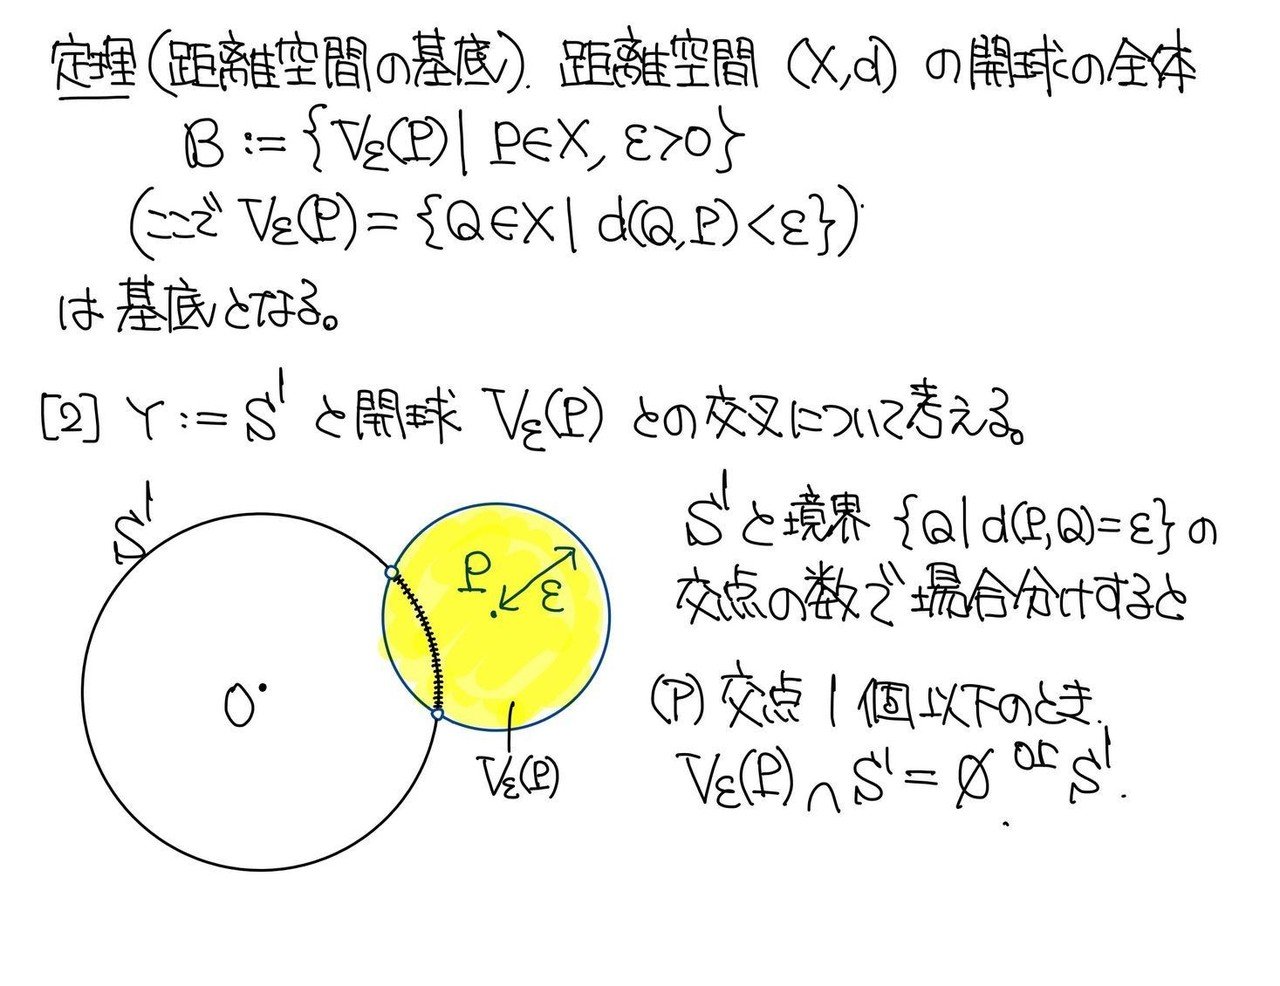 定理(距離空間の基底). 距離空間 (X,d) の開球の全体
B := {Vε(P) | P∈X, ε>0}
(ここで Vε(P) = {Q∈X | d(Q,P)<ε})
は基底となる。
[2] Y := S¹ と開球 Vε(P) との交叉について考える。
S¹
P
ε
O
Vε(P)
S¹と境界 {Q | d(P,Q)=ε} の
交点の数で場合分けすると
(ア) 交点1個以下のとき.
Vε(P) ∩ S¹ = ∅ or S¹.